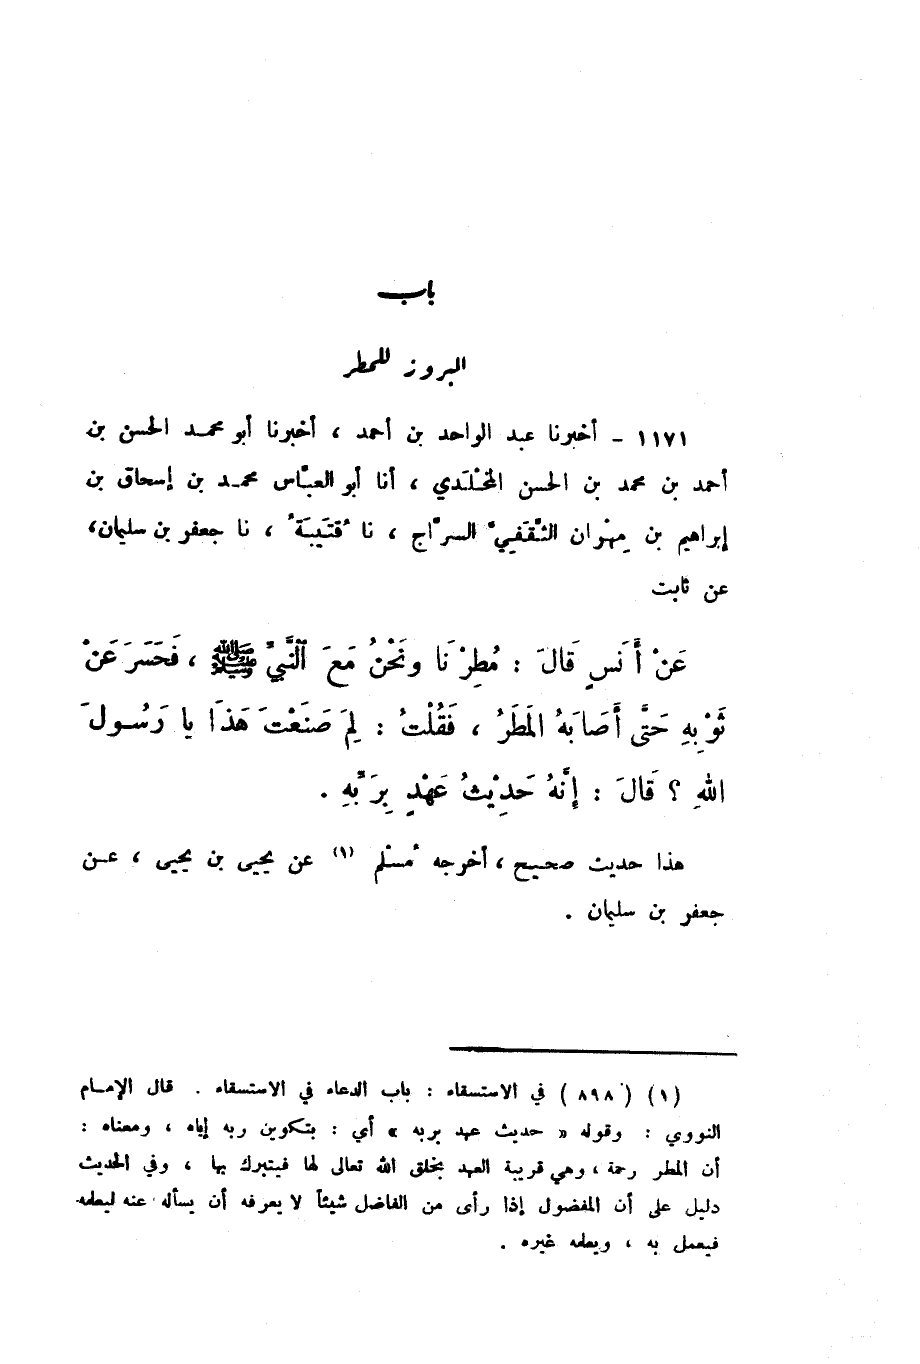 باب
البروز للمطر
١١٧١ – أخبرنا عبد الواحد بن أحمد ، أخبرنا أبو محمد الحسن بن
أحمد بن محمد بن الحسن المَخْلَدي ، أنا أبو العبَّاس محمد بن إسحاق بن
إبراهيم بن مِهْران الثَّقَفيّ السرّاج ، نا قُتَيبَةُ ، نا جعفر بن سليمان،
عن ثابت
عَنْ أَنَسٍ قَالَ : مُطِرْنَا ونَحْنُ مَعَ النَّبيِّ ﷺ ، فَحَسَرَ عَنْ
ثَوْبِهِ حَتَّى أَصَابَهُ المَطَرُ ، فَقُلْتُ : لِمَ صَنَعْتَ هَذَا يا رَسُولَ
اللهِ ؟ قَالَ : إِنَّهُ حَدِيْثُ عَهْدٍ بِرَبِّهِ .
هذا حديث صحيح ، أخرجه مُسْلم (١) عن يحيى بن يحيى ، عن
جعفر بن سليمان .
(١) ( ٨٩٨ ) في الاستسقاء : باب الدعاء في الاستسقاء . قال الإمام
النووي : وقوله « حديث عهد بربه » أي : بتكوين ربه إياه ، ومعناه :
أن المطر رحمة ، وهي قريبة العهد بخلق الله تعالى لها فيتبرك بها ، وفي الحديث
دليل على أن المفضول إذا رأى من الفاضل شيئاً لا يعرفه أن يسأله عنه ليعلمه
فيعمل به ، ويعلمه غيره .